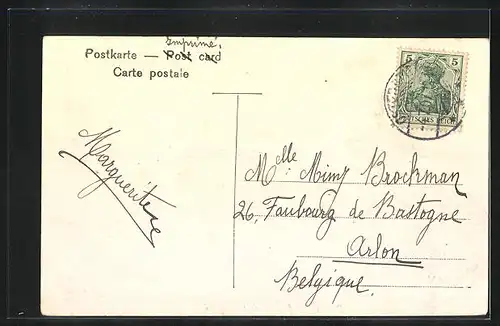 Imprimé.
Postkarte — Post card
Carte postale
5 5
DEUTSCHES REICH
Marguerite
Melle Mimy Brockman
26, Faubourg de Bastogne
Arlon
Belgique.